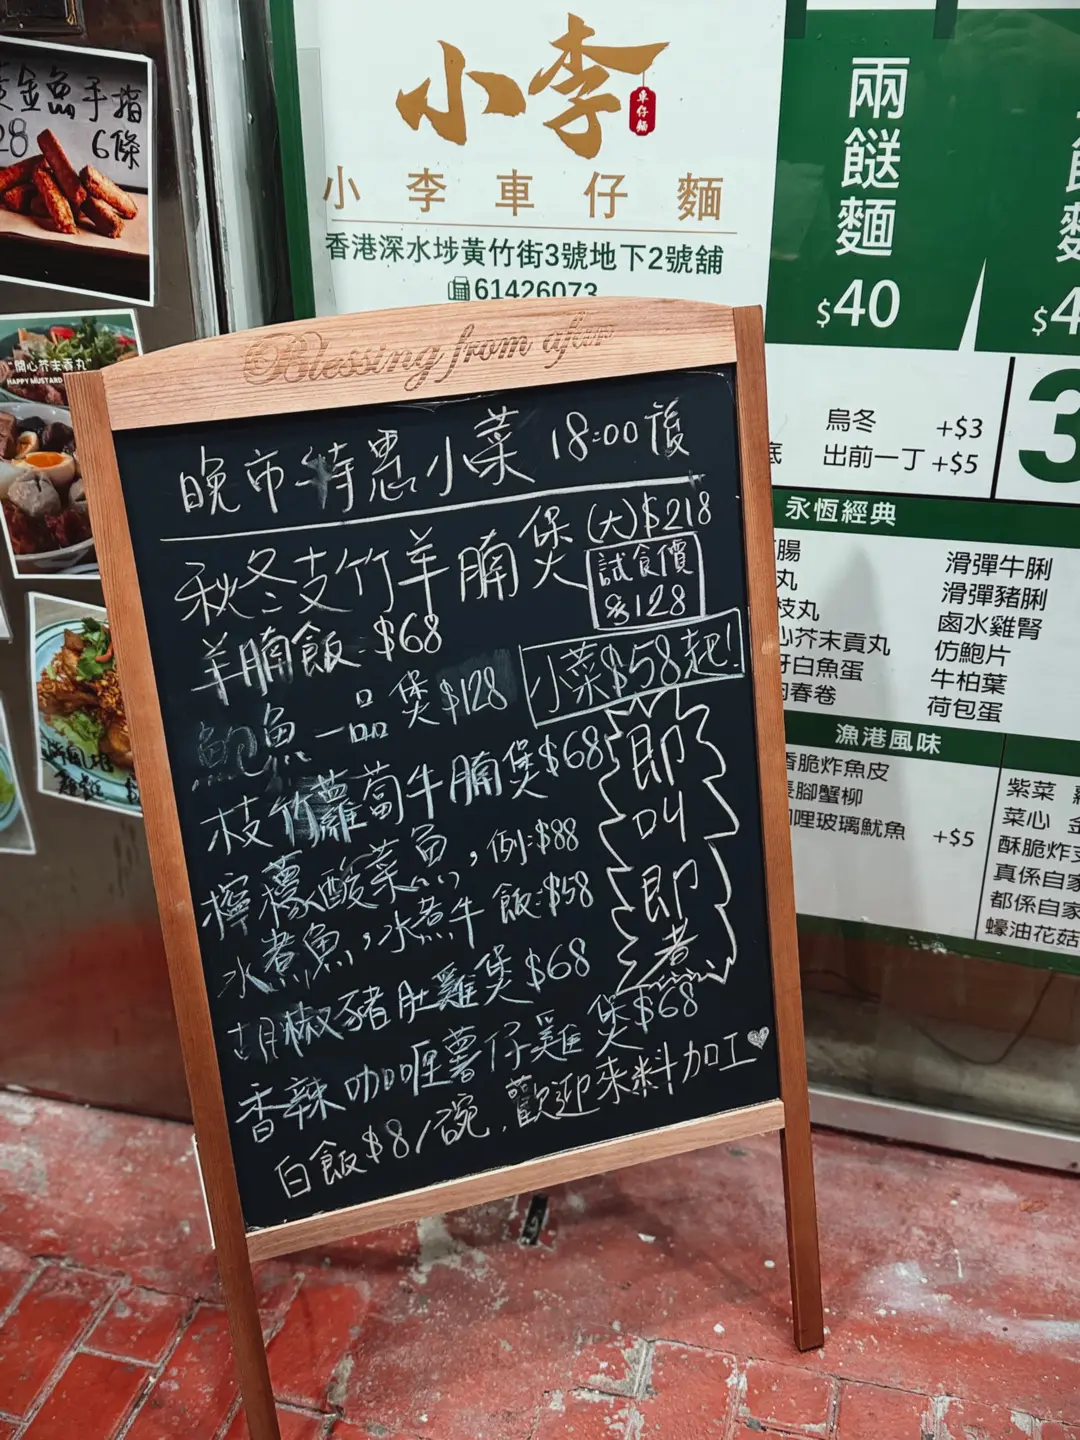 金魚手指
28 6條
開心芥末貢丸
HAPPY MUSTARD
小李
車仔麵
小李車仔麵
香港深水埗黃竹街3號地下2號舖
61426073
兩餸麵
$40
$4
烏冬 +$3
底 出前一丁 +$5
3
永恆經典
腸 滑彈牛脷
丸 滑彈豬脷
枝丸 鹵水雞腎
心芥末貢丸 仿鮑片
白魚蛋 牛柏葉
春卷 荷包蛋
漁港風味
香脆炸魚皮
長腳蟹柳
咖哩玻璃魷魚 +$5
紫菜
菜心 金
酥脆炸支
真係自家
都係自家
蠔油花菇
Blessing from after
晚市特惠小菜 18:00後
秋冬支竹羊腩煲 (大)$218
試食價
$128
羊腩飯 $68
小菜$58起!
鮑魚一品煲$128
枝竹蘿蔔牛腩煲$68
檸檬酸菜魚, 例:$88
水煮魚, 水煮牛 飯:$58
胡椒豬肚雞煲$68
香辣咖喱薯仔雞煲$68
白飯$8/碗, 歡迎來料加工
即叫即煮